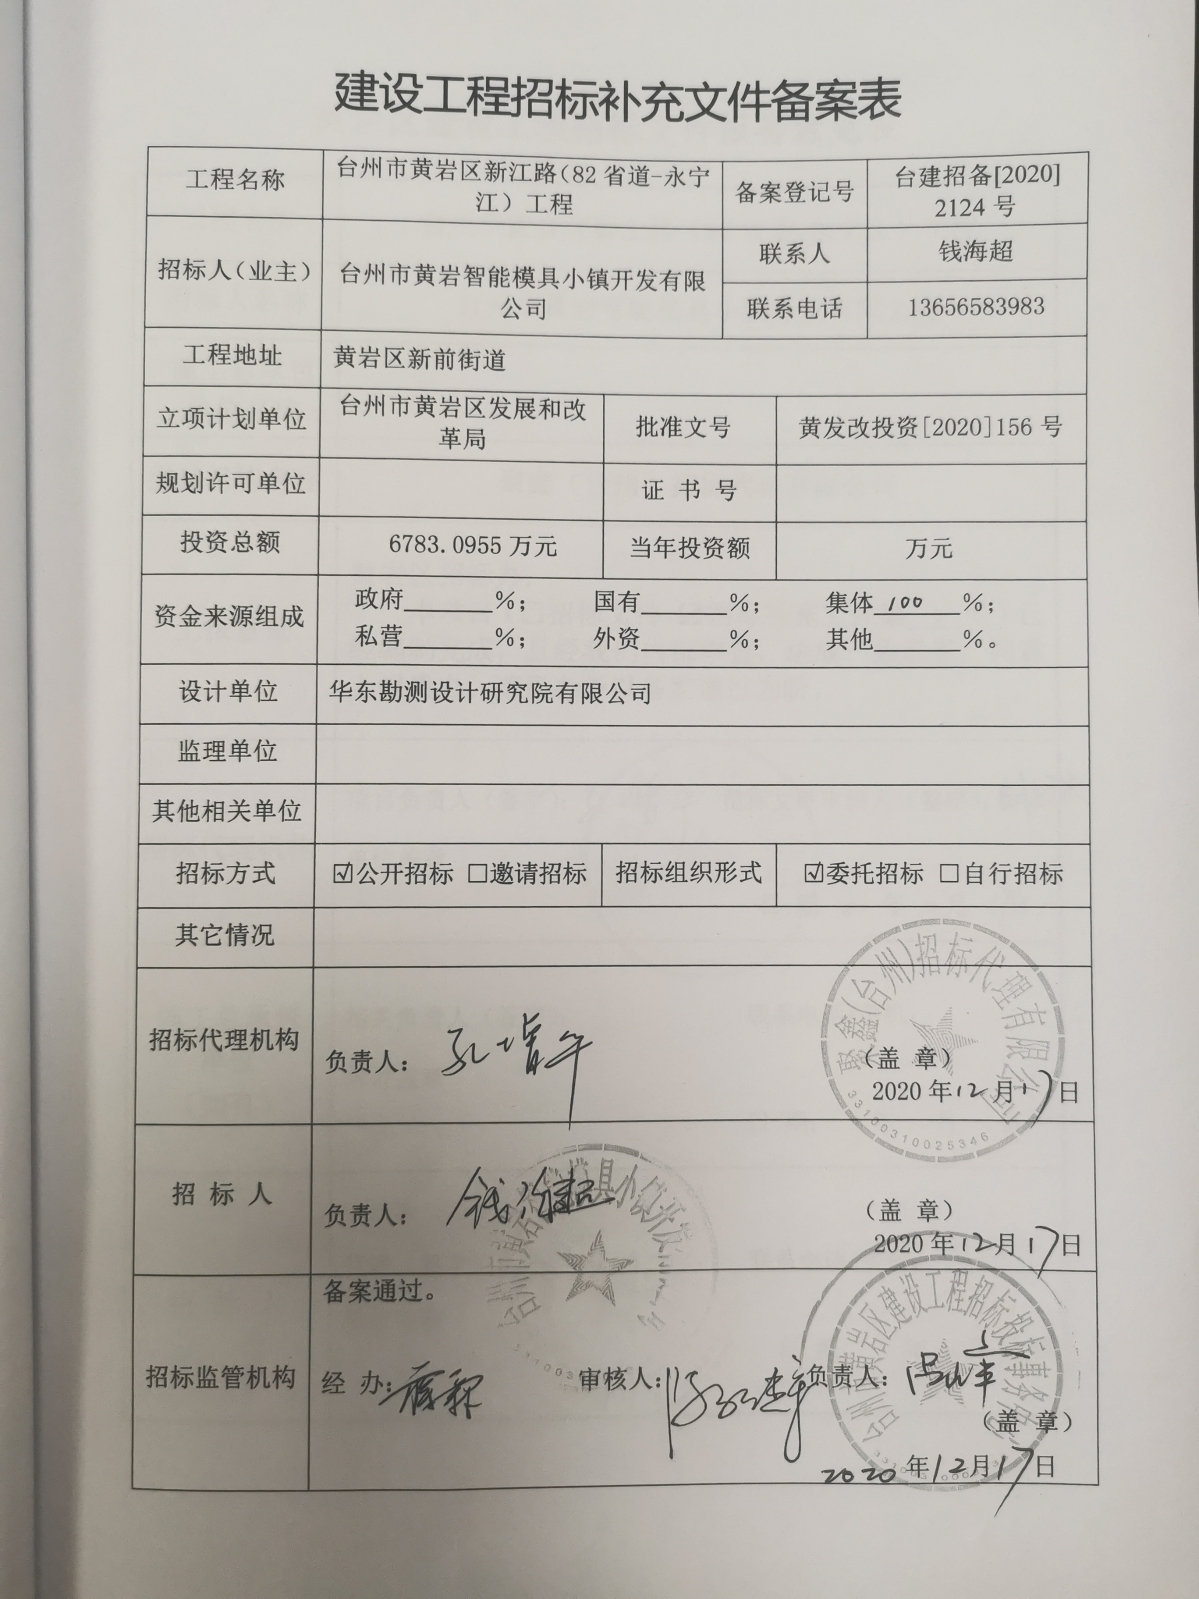 建设工程招标补充文件备案表
工程名称
台州市黄岩区新江路（82省道-永宁
江）工程
备案登记号
台建招备[2020]
2124号
招标人（业主）
台州市黄岩智能模具小镇开发有限
公司
联系人
钱海超
联系电话
13656583983
工程地址
黄岩区新前街道
立项计划单位
台州市黄岩区发展和改
革局
批准文号
黄发改投资[2020]156号
规划许可单位
证 书 号
投资总额
6783.0955万元
当年投资额
万元
资金来源组成
政府______%； 国有______%； 集体 100 %；
私营______%； 外资______%； 其他______%。
设计单位
华东勘测设计研究院有限公司
监理单位
其他相关单位
招标方式
☑公开招标 □邀请招标
招标组织形式
☑委托招标 □自行招标
其它情况
招标代理机构
负责人：
聚鑫(台州)招标代理有限公司
33100310025346
（盖 章）
2020年12月17日
招 标 人
负责人：
钱海超
（盖 章）
2020年12月17日
招标监管机构
备案通过。
经 办：
审核人：
负责人：
台州市黄岩区建设工程招标投标事务中心
（盖 章）
2020年12月17日